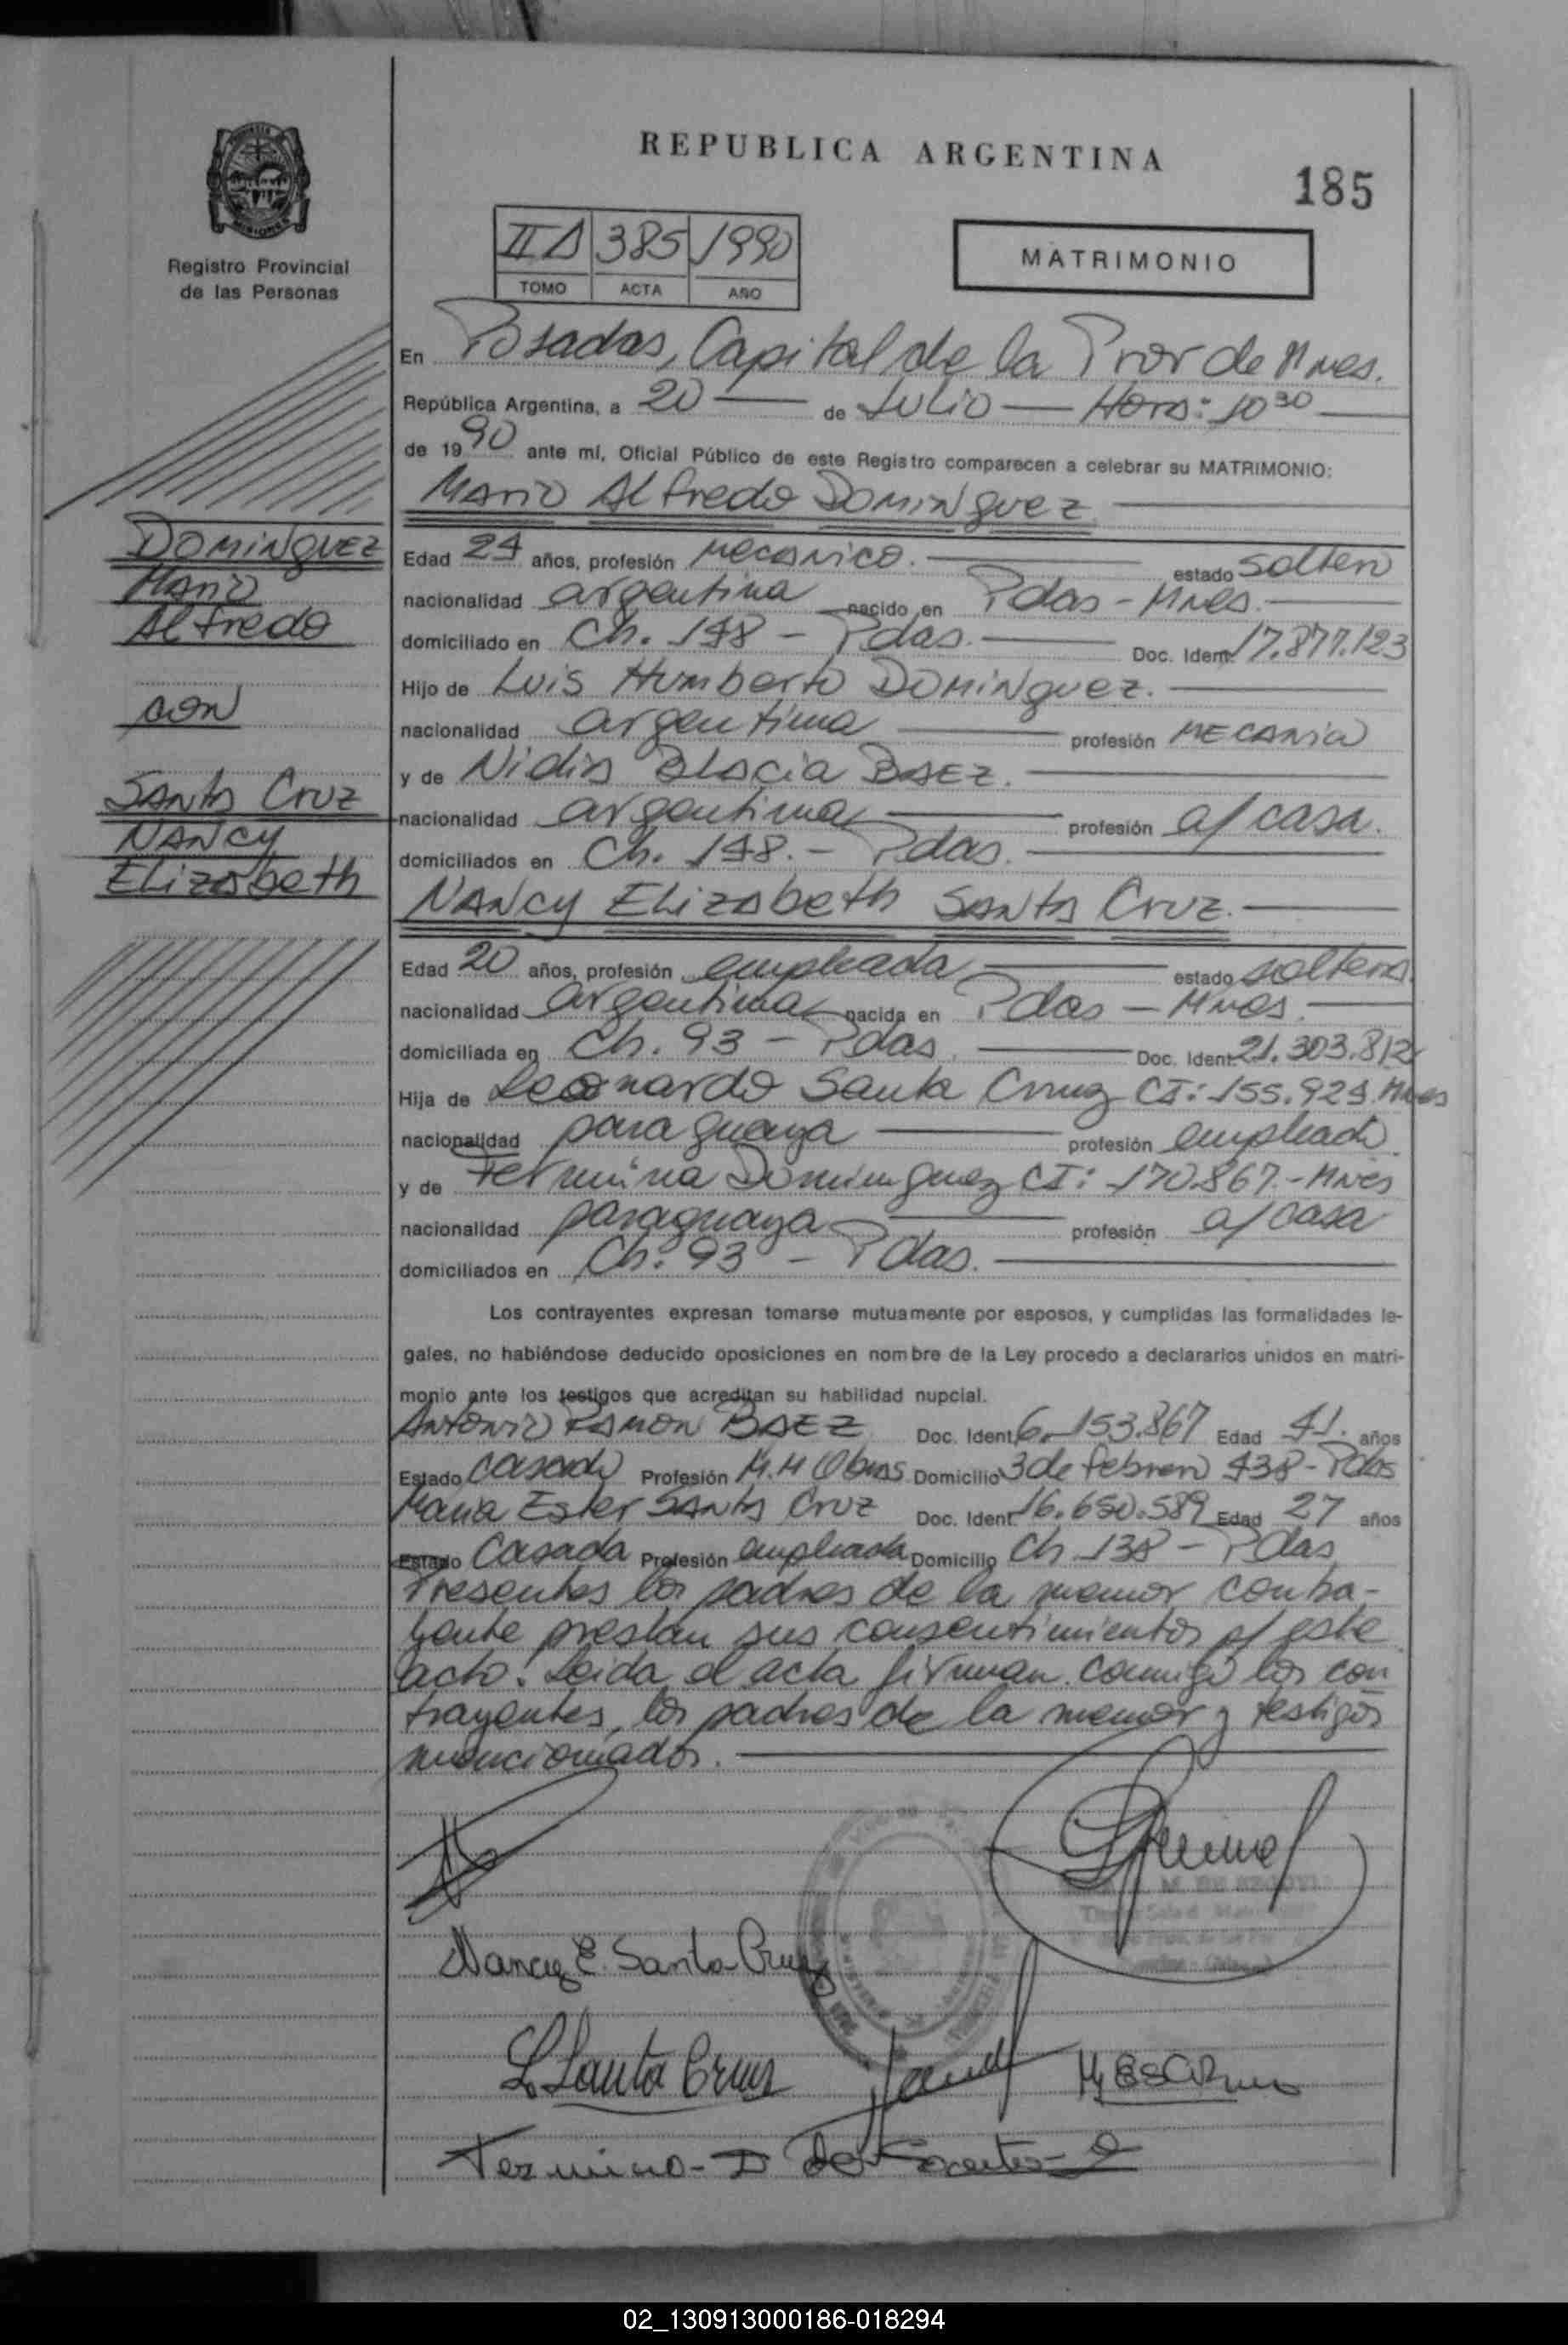 REPUBLICA ARGENTINA
185
Registro Provincial
de las Personas
385 1990
TOMO ACTA AÑO
MATRIMONIO
En Posadas, Capital de la Prov de Mnes.
República Argentina, a 20 de Julio Hora: 10 30
de 1990 ante mí, Oficial Público de este Registro comparecen a celebrar su MATRIMONIO:
Mario Alfredo DOMINguez
DOMINGUEZ
Mario
Alfredo
con
SANTA CRUZ
NANCY
Elizabeth
Edad 24 años, profesión mecanico. estado soltero
nacionalidad argentina nacido en Pdas - Mnes.
domiciliado en Ch. 148 - Pdas. Doc. Ident. 17.877.123
Hijo de Luis Humberto DOMINguez.
nacionalidad argentina profesión MECANico
y de Nidia BAEZ.
nacionalidad argentina profesión a/casa.
domiciliados en Ch. 148. - Pdas.
NANCY Elizabeth SANTA CRUZ.
Edad 20 años, profesión empleada estado soltera
nacionalidad argentina nacida en Pdas - Mnes.
domiciliada en Ch. 93 - Pdas. Doc. Ident. 21.303.812
Hija de Leonardo Santa Cruz CI: 155.924 Mnes
nacionalidad paraguaya profesión empleado
y de Fermina Dominguez CI: 170.867.- Mnes
nacionalidad paraguaya profesión a/casa
domiciliados en Ch. 93 - Pdas.
Los contrayentes expresan tomarse mutuamente por esposos, y cumplidas las formalidades le-
gales, no habiéndose deducido oposiciones en nombre de la Ley procedo a declararlos unidos en matri-
monio ante los testigos que acreditan su habilidad nupcial.
Antonio Ramon BAEZ Doc. Ident. 6.153.867 Edad 41. años
Estado casado Profesión M.M Obras Domicilio 3 de febrero 438 - Pdas
Maria Ester SANTA CRUZ Doc. Ident. 16.650.589 Edad 27 años
Estado Casada Profesión empleada Domicilio Ch 138 - Pdas
Presentes los padres de la menor contra-
yente prestan sus consentimientos p/ este
acto. Leida el acta firman conmigo los con
trayentes, los padres de la menor y testigos
mencionados.
Nancy E. Santa Cruz
L. Santa Cruz
02_130913000186-018294